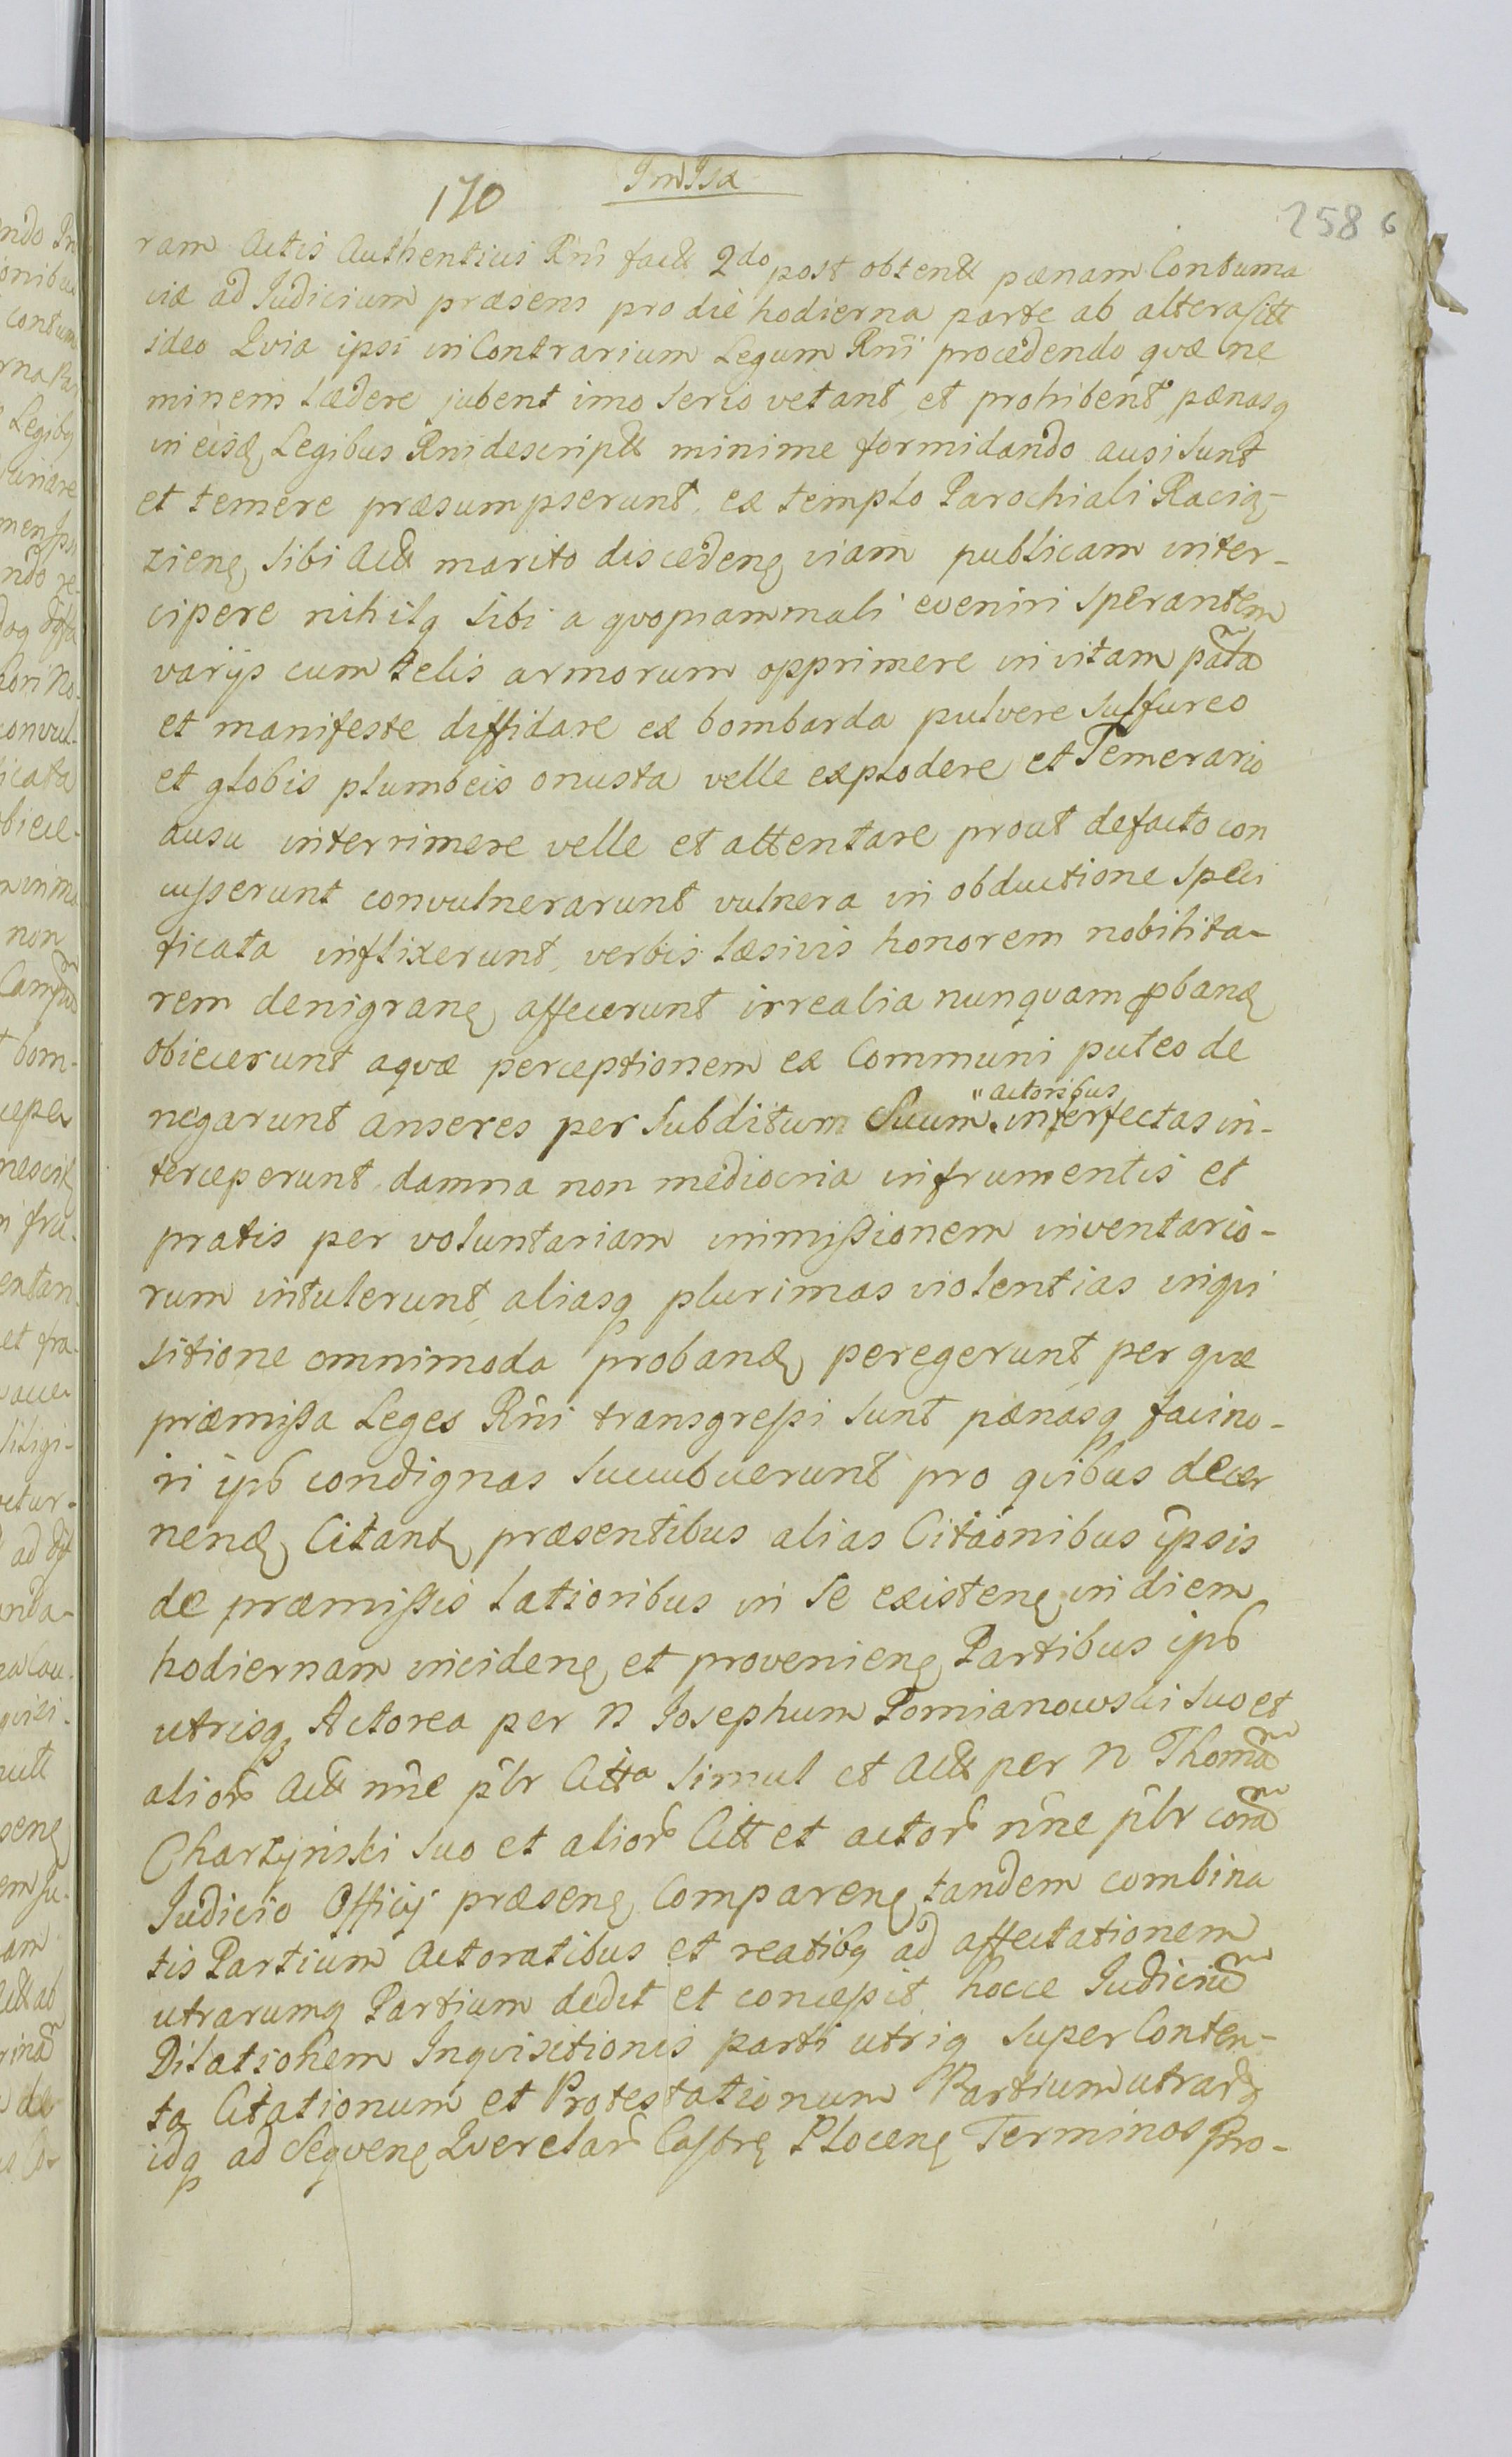 170
258 6
ram Actis Authenticis Rni fact 2do post obtent pænam Contuma
ciæ ad Judicium præsens pro die hodierna parte ab altera Citt
ideo Qvia ipsi in Contrarium Legum Rni procedendo qvæ ne
minem lædere jubent imo serio vetant et prohibent pænasq
in eisd Legibus Rni descript minime formidando ausi sunt
et temere præsumpserunt, ex templo Parochiali Racią-
zieng sibi Act marito discedeng viam publicam inter-
cipere nihilq sibi a qvopiam mali eveniri sperantem
varijs cum telis armorum opprimere in vitam pata
et manifeste diffidare ex bombarda pulvere sulfureo
et globis plumbeis onusta velle explodere et Temerario
ausu interrimere velle et attentare prout de facto con
cusserunt convulnerarunt vulnera in obductione speci
ficata inflixerunt, verbis læsivis honorem nobilita-
rem denigrang affecerunt irrealia nunqvam pband
obiecerunt aqvæ perceptionem ex Communi puteo de
negarunt anseres per subditum Suum " actoribus interfectas in-
terceperunt damna non mediocria in frumentis et
pratis per voluntariam immissionem inventario-
rum intulerunt, aliasq plurimas violentias inqvi
sitione omnimoda proband peregerunt per qvæ
præmissa Leges Rni transgressi sunt pænasq facino-
ri ipb condignas succubuerunt pro qvibus decer
nend Citant præsentibus alias Citaonibus ipsis
de præmissis latioribus in se existeng in diem
hodiernam incideng et provenieng Partibus ipb
utrisq Actorea per N Josephum Pomianowski suo et
alior Act nne plr Citta simul et Act per N Thoma
Chartynski suo et alior Citt et actor nne plr cora
Judicio Officij præseng Compareng tandem combina
tis Partium Actoratibus et reatibq ad affectationem
utrarumq Partium dedit et concessit hocce Judiciu
Dilationem Inqvisitionis parti utriq super Conten-
ta Citationum et Protestationum Partium utrarq
idq ad Seqveng Qverelar Castrs Ploceng Terminos Pro-